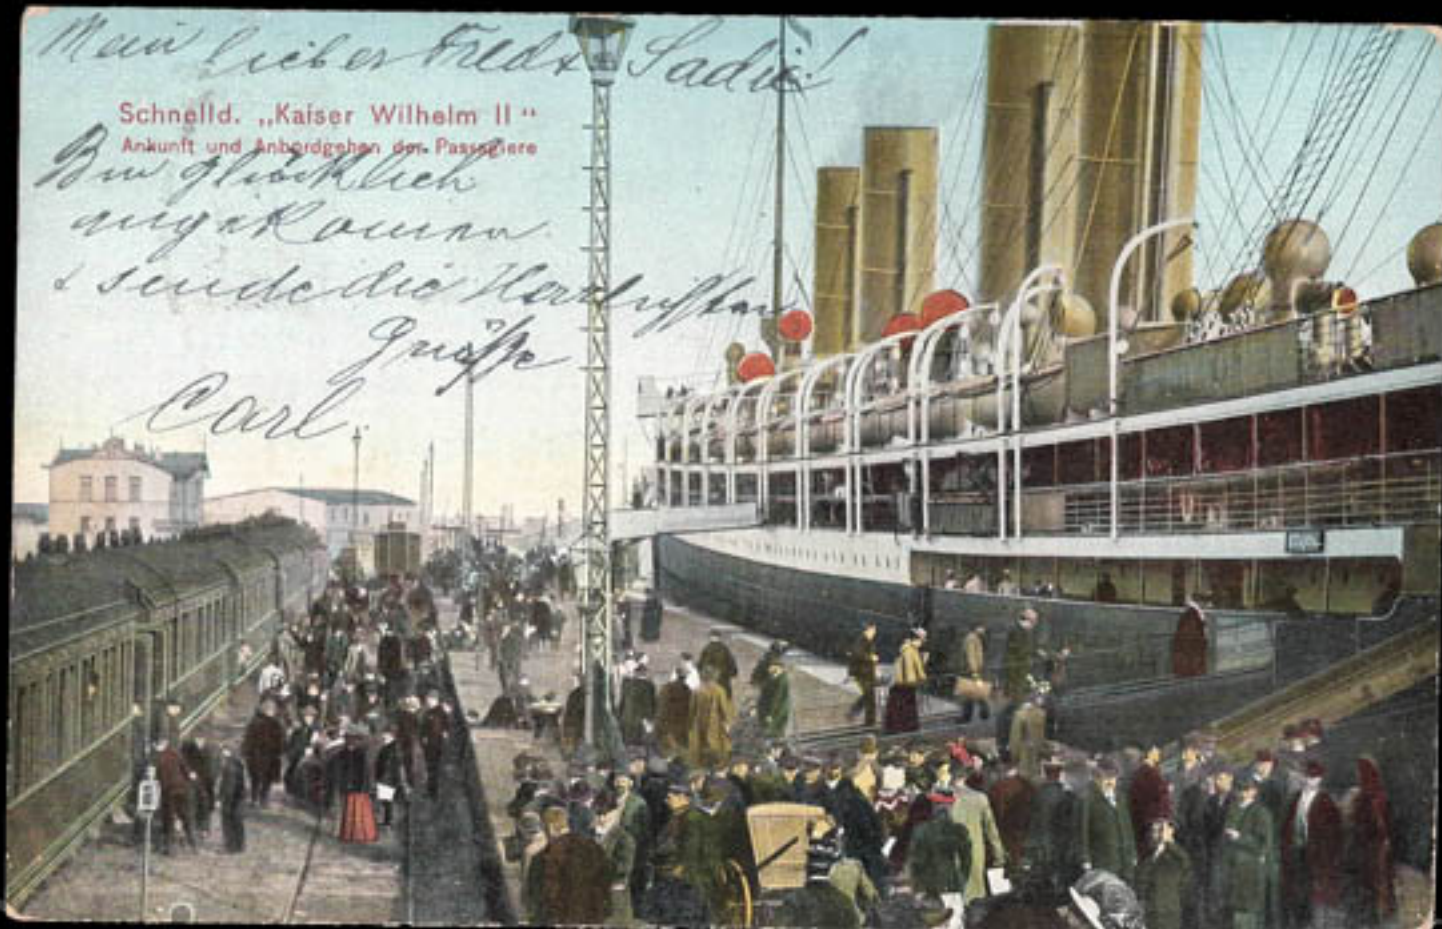 Mein lieber Fred & Sadie!
Schnelld. „Kaiser Wilhelm II“
Ankunft und Anbordgehen der Passagiere
Bin glücklich
angekommen
& sende die Herzlichsten
Grüsse
Carl.